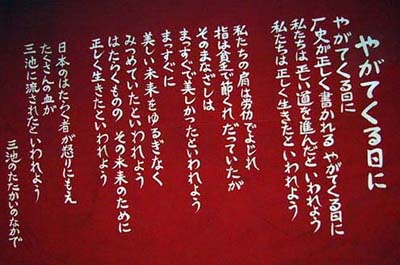 やがてくる日に
やがてくる日に
厂史が正しく書かれる やがてくる日に
私たちは正しい道を進んだといわれよう
私たちは正しく生きたといわれよう
私たちの肩は労仂でよじれ
指は貧乏で節くれだっていたが
そのまなざしは
まっすぐで美しかったといわれよう
まっすぐに
美しい未来をゆるぎなく
みつめていたといわれよう
はたらくものの その未来のために
正しく生きたといわれよう
日本のはたらく者が怒りにもえ
たくさんの血が
三池に流されたといわれよう
三池のたたかいのなかで